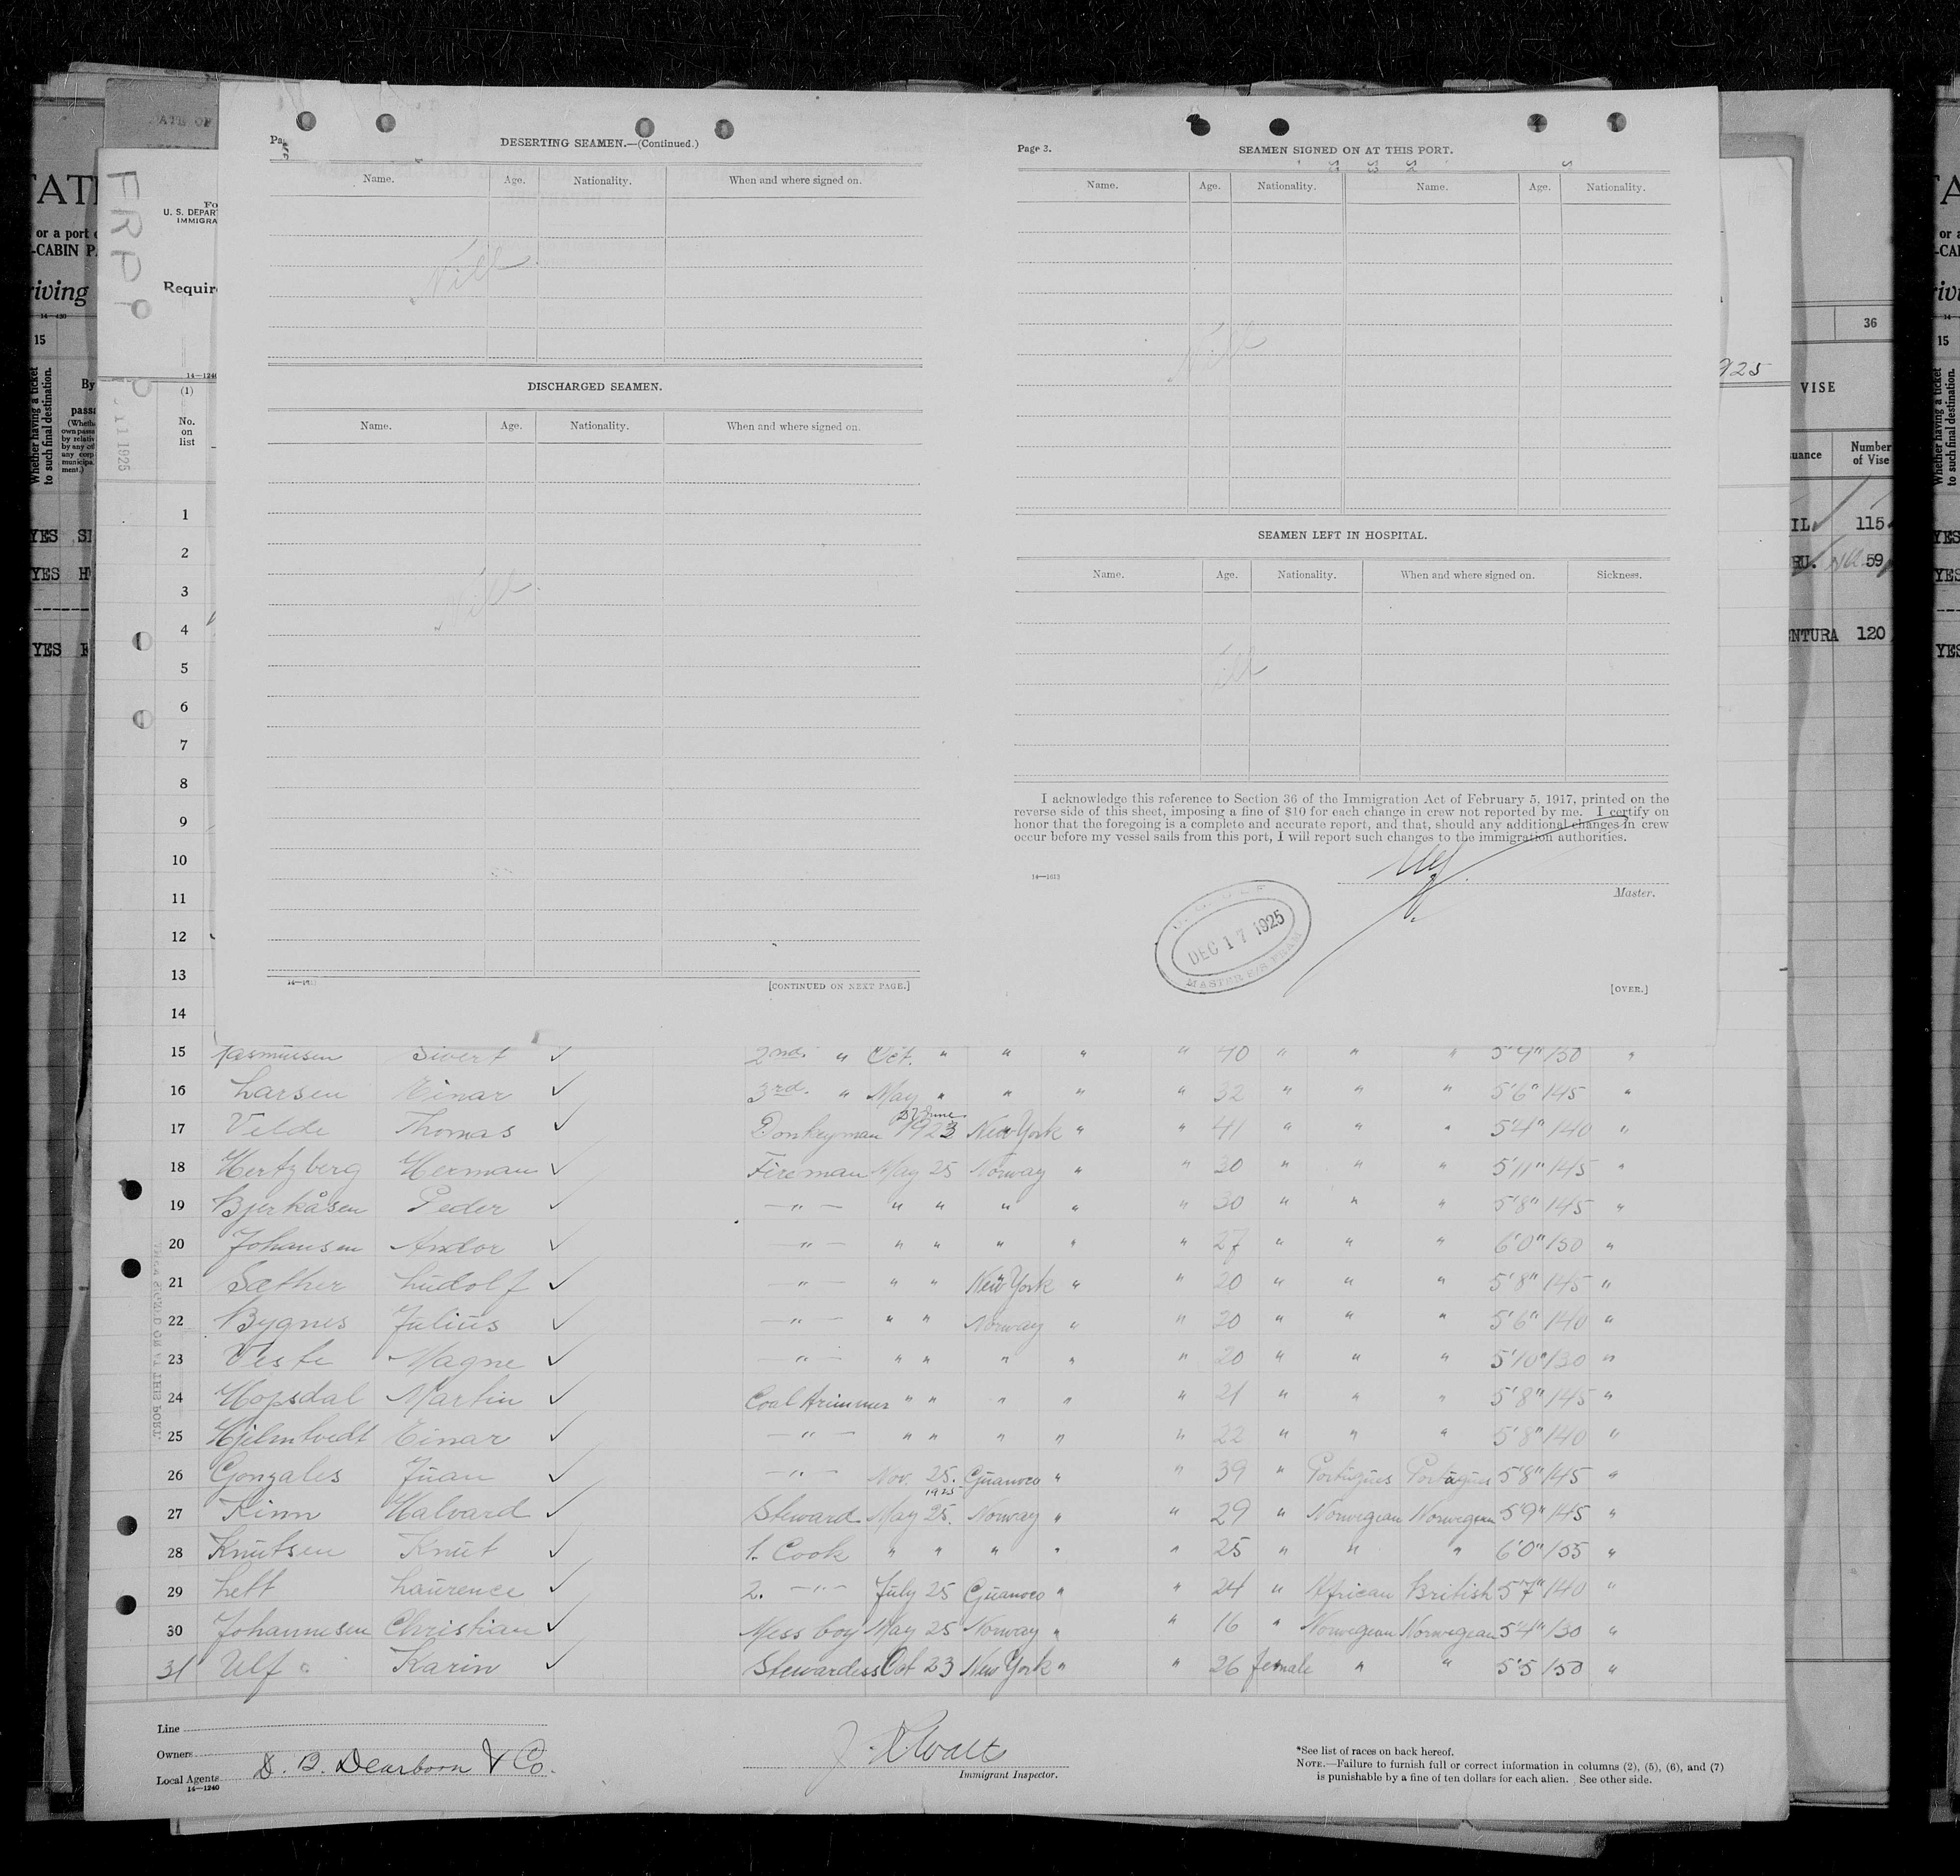 DESERTING SEAMEN.—(Continued.)
Name. Age. Nationality. When and where signed on.
Nill
DISCHARGED SEAMEN.
Name. Age. Nationality. When and where signed on.
Nill
14—1613
[CONTINUED ON NEXT PAGE.]
Page 3. SEAMEN SIGNED ON AT THIS PORT.
Name. Age. Nationality. Name. Age. Nationality.
Nill
SEAMEN LEFT IN HOSPITAL.
Name. Age. Nationality. When and where signed on. Sickness.
Nill
I acknowledge this reference to Section 36 of the Immigration Act of February 5, 1917, printed on the
reverse side of this sheet, imposing a fine of $10 for each change in crew not reported by me. I certify on
honor that the foregoing is a complete and accurate report, and that, should any additional changes in crew
occur before my vessel sails from this port, I will report such changes to the immigration authorities.
14—1613
Master.
DEC 17 1925
[OVER.]
FRPP
U. S. DEPART
IMMIGRA
Requir
14—1240
(1)
No.
on
list
11 1925
1
2
3
4
5
6
7
8
9
10
11
12
13
14
15 Rasmussen Sivert ✓ 2nd. " Oct. " " " " 40 " " " 5'4" 150 "
16 Larsen Einar ✓ 3rd. " May " " " " 32 " " " 5'6" 145 "
17 Velde Thomas ✓ Donkeyman 27 June 1923 New York " " 41 " " " 5'4" 140 "
18 Hertzberg Herman ✓ Fireman May 25 Norway " " 30 " " " 5'11" 145 "
19 Bjerkåsen Peder ✓ —"— " " " " " 30 " " " 5'8" 145 "
20 Johansen Andor ✓ —"— " " " " " 27 " " " 6'0" 150 "
21 Sæther Ludolf ✓ —"— " " New York " " 20 " " " 5'8" 145 "
22 Bygnes Julius ✓ —"— " " Norway " " 20 " " " 5'6" 140 "
23 Veste Magne ✓ —"— " " " " " 20 " " " 5'10" 130 "
24 Hopsdal Martin ✓ Coal trimmer " " " " " 21 " " " 5'8" 145 "
25 Hjelmtvedt Einar ✓ —"— " " " " " 22 " " " 5'8" 140 "
26 Gonzales Juan ✓ —"— Nov. 25. 1925 Guanoco " " 39 " Portugues Portugues 5'8" 145 "
27 Kinn Halvard ✓ Steward May 25. Norway " " 29 " Norwegian Norwegian 5'9" 145 "
28 Knutsen Knut ✓ 1. Cook " " " " " 25 " " " 6'0" 155 "
29 Lett Laurence ✓ 2. —"— July 25 Guanoco " " 24 " African British 5'7" 140 "
30 Johannesen Christian ✓ Mess boy May 25 Norway " " 16 " Norwegian Norwegian 5'4" 130 "
31 Ulf Karin ✓ Stewardess Oct 23 New York " " 26 female " " 5'5 150 "
Line
Owners
Local Agents D. B. Dearborn & Co.
14—1240
Immigrant Inspector.
*See list of races on back hereof.
NOTE.—Failure to furnish full or correct information in columns (2), (5), (6), and (7)
is punishable by a fine of ten dollars for each alien. See other side.
or a port
-CABIN
riving
15
Whether having a ticket
to such final destination.
By
YES
YES
YES
925
36
VISE
Number
of Vise
115
59
ENTURA 120